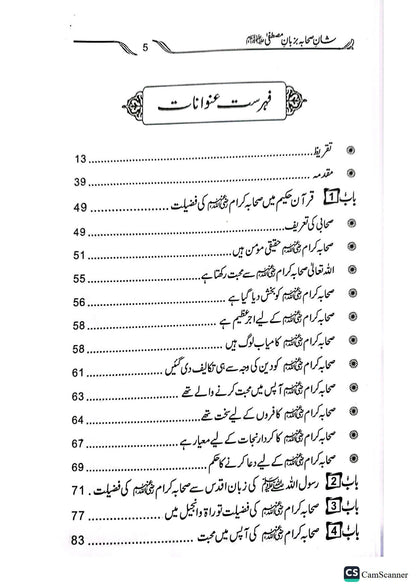 شان صحابہ بزبان مصطفیٰ ﷺ 5
فہرست عنوانات
◉ تقریظ ........ 13
◉ مقدمہ ........ 39
باب 1 قرآن حکیم میں صحابہ کرام رضی اللہ عنہم کی فضیلت ........ 49
◉ صحابی کی تعریف ........ 49
◉ صحابہ کرام رضی اللہ عنہم حقیقی مومن ہیں ........ 51
◉ اللہ تعالیٰ صحابہ کرام رضی اللہ عنہم سے محبت رکھتا ہے ........ 55
◉ صحابہ کرام رضی اللہ عنہم کو بخش دیا گیا ہے ........ 56
◉ صحابہ کرام رضی اللہ عنہم کے لیے اجر عظیم ہے ........ 58
◉ صحابہ کرام رضی اللہ عنہم کامیاب لوگ ہیں ........ 58
◉ صحابہ کرام رضی اللہ عنہم کو دین کی وجہ سے ہی تکالیف دی گئیں ........ 61
◉ صحابہ کرام رضی اللہ عنہم آپس میں محبت کرنے والے تھے ........ 63
◉ صحابہ کرام رضی اللہ عنہم کافروں کے لیے سخت تھے ........ 64
◉ صحابہ کرام رضی اللہ عنہم کا کردار نجات کے لیے معیار ہے ........ 67
◉ صحابہ کرام رضی اللہ عنہم کے لیے دعا کرنے کا حکم ........ 69
باب 2 رسول اللہ ﷺ کی زبان اقدس سے صحابہ کرام رضی اللہ عنہم کی فضیلت . 71
باب 3 صحابہ کرام رضی اللہ عنہم کی فضیلت تورات و انجیل میں ........ 77
باب 4 صحابہ کرام رضی اللہ عنہم کی آپس میں محبت ........ 83
CS CamScanner